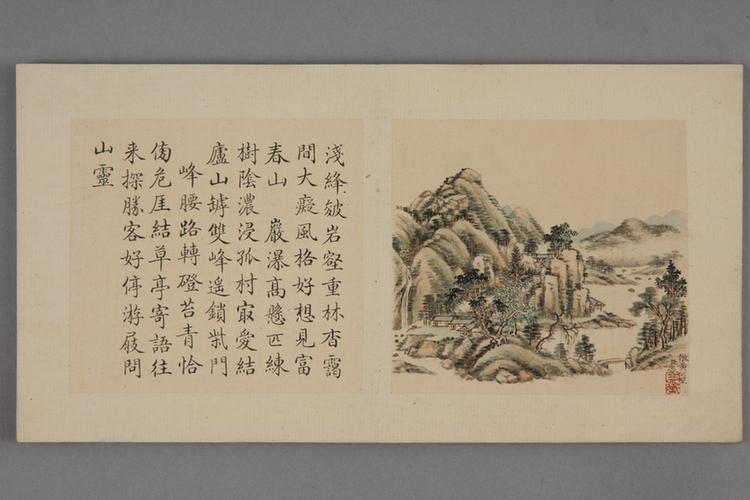 淺絳皴岩壑重林杳靄
間大癡風格好想見富
春山　巖瀑高懸匹練
樹陰濃浸孤村㝡愛結
廬山罅雙峰遙鎖柴門
峰腰路轉磴苔青恰
傍危厓結草亭寄語往
来探勝客好停游屐問
山靈